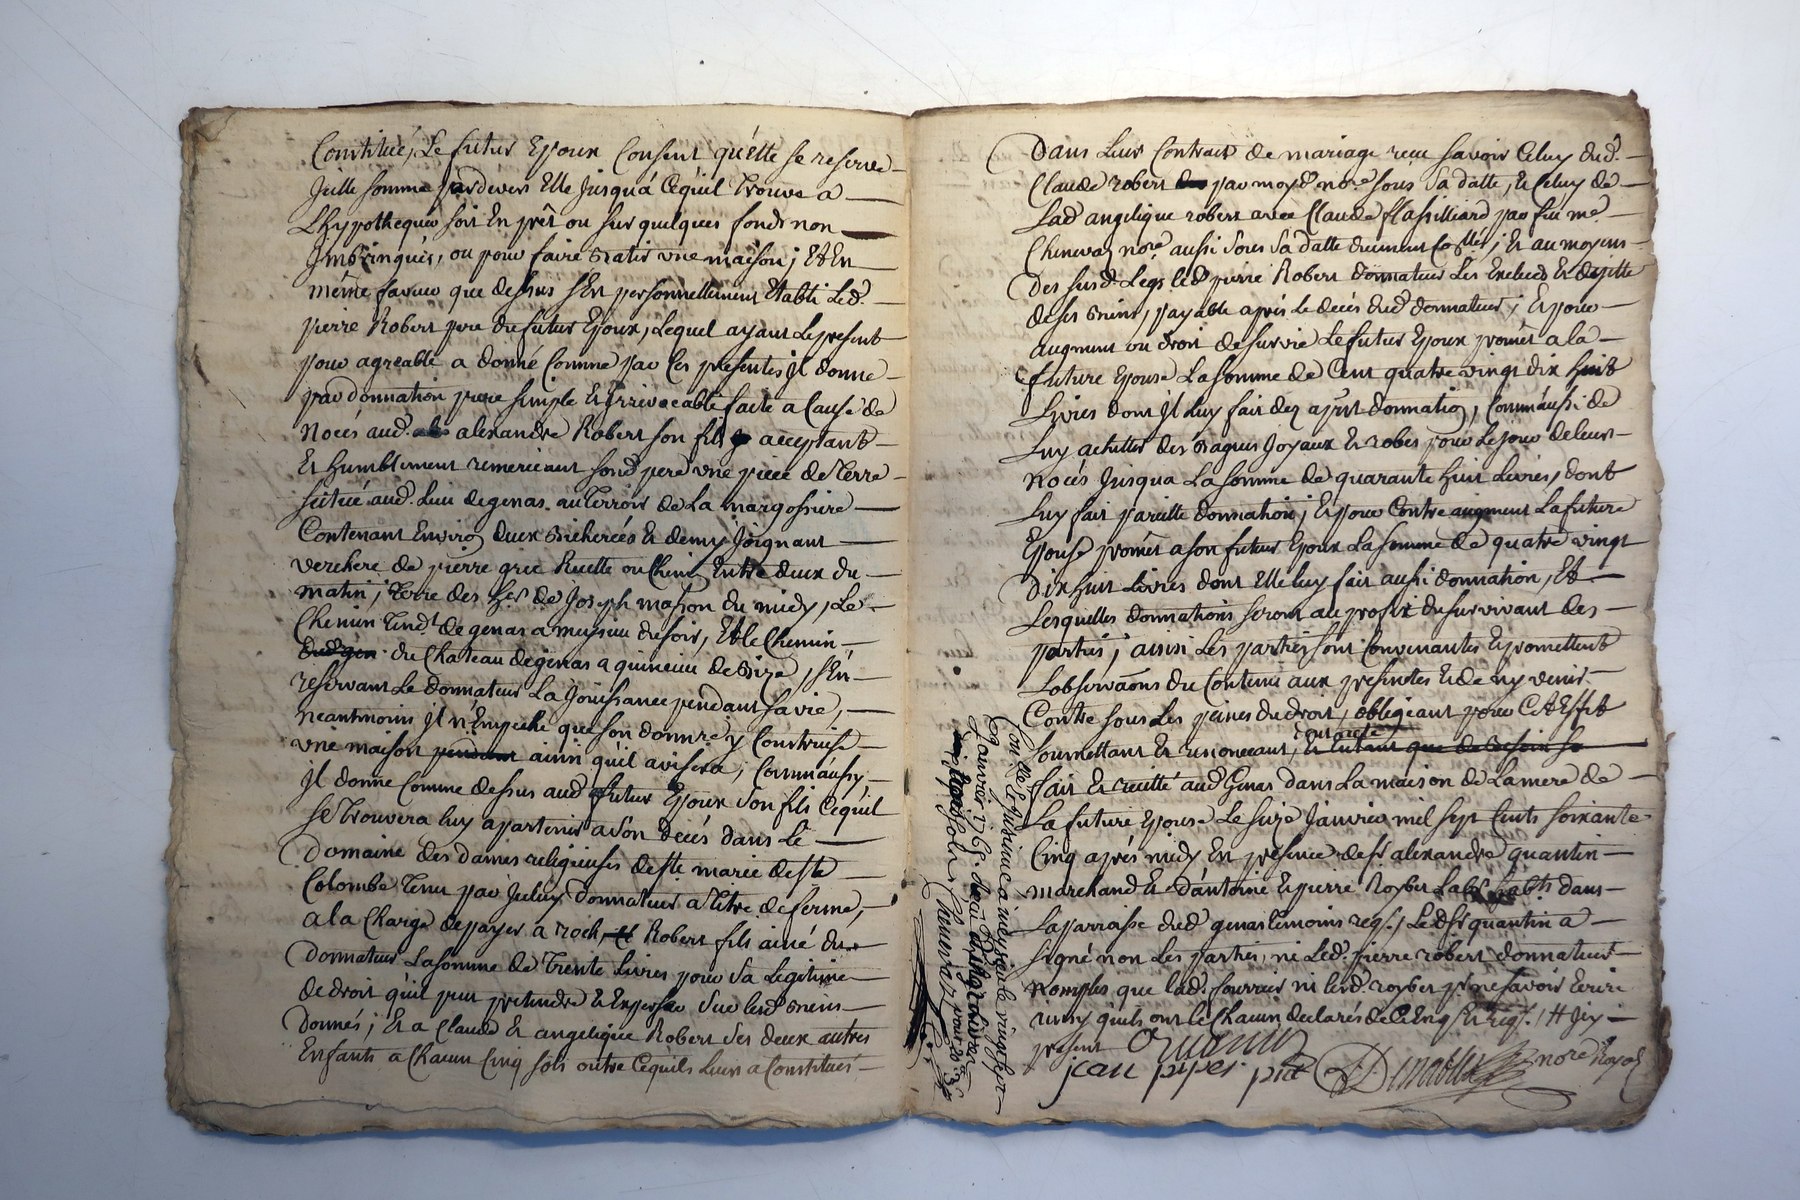 Constitué, Le futur Epoux Consent qu'elle se reserve
Jcelle somme pardevers Elle Jusqu'a Cequil trouve a
L'hypothequer soit En prêt ou sur quelques fonds non
Jmbringués, ou pour faire Batir une maison; Et En
même faveur que dessus s'En personnellement Etabli Led.
pierre Robert pere du futur Epoux, Lequel ayant Le present
pour agreable a donné Comme par Ces presentes Jl donne
par donnation pure simple Et Jrrevocable faite a Cause de
Noces aud. alexandre Robert son fils acceptant
Et humblement remerciant sond pere une piece de Terre
scituée aud. Lieu de genas au Terroir de La margossiere
Contenant Environ deux Bicherées Et demy Joignant
verchere de pierre gric Ruette ou Chemin Entre deux du
matin; Terre des hers de Joseph masson du midy, Le
Chemin Tend.t de genas a meysieu du soir, Et le Chemin
du Chateau de genas a quincieu de Bize, s'En
reservant Le donnateur La Jouissance pendant sa vie,
neantmoins Jl n'Empeche que son donnre y Construise
une maison pendant ainsi qu'il avisera; Comm'aussy
Jl donne Comme dessus aud futur Epoux son fils Cequil
se trouvera luy apartenir a son decés dans Le
Domaine des dames religieuses de ste marie de ste
Colombe Tenu par Jceluy donnateur a Titre de ferme,
a la Charge de payer a roch Robert fils ainé du
donnateur La somme de Trente Livres pour sa Legitime
de droit qu'il peut pretendre Et Esperer sur lesd. Biens
donnés; Et a Claude Et angelique Robert ses deux autres
Enfants a Chacun Cinq sols outre Cequils Leur a Constitués
Dans Leur Contract de mariage reçu savoir Celuy dud.
Claude robert par moyd nore sous sa datte, Et Celuy de
Lad angelique robert avec Claude flassilliard par feu me
Chenevaz nore aussi sous sa datte duement Collés; Et au moyens
Des susd. Legs led pierre Robert donnateur Les Exclud Et dejette
de ses Biens, payable après Le decés dud donnateur; Et pour
augment ou droit de survie Le futur Epoux promet a la
future Epouse La somme de Cent quatre vingt dix huit
Livres dont Jl Luy fait dez aprst donnation, Comm'aussi de
Luy achetter des Bagues Joyaux Et robes pour Le jour de leurs
noces Jusqua La somme de quarante huit Livres, dont
Luy fait pareille donnation; Et pour Contre augment La future
Epouse promet a son futur Epoux La somme de quatre vingt
Dix huit Livres dont Elle luy fait aussi donnation, Et
Lesquelles donnations seront au profit du survivant des
parties; ainsi Les parties sont Convenantes Et promettent
Lobservaons du Contenu aux presentes Et de ny venir
Contre sous Les peines du droit, obligeant pour Cet Effet
soumettant Et renonceant, Et Entant que de Besoin se
fait Et recitté aud Genas dans La maison de La mere de
La future Epouse Le seize Janvier mil sept Cents soixante
Cinq après midy En presence de sr alexandre quantin
marchand Et d'antoine Et pierre Royber Labrs habts dans
La parroisse dud genas temoins reqs, Led. sr quantin a
signé non Les parties, ni Led. pierre robert donnateur
nomplus que lad. ni lesd. royber pr ne savoir Ecrire
ainsy quils ont le Chacun declarés de Ce Enquis Et reqs.
present Quantin
jean pipet pnt nore Royal